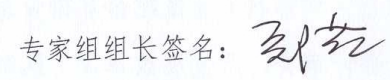 专家组组长签名：